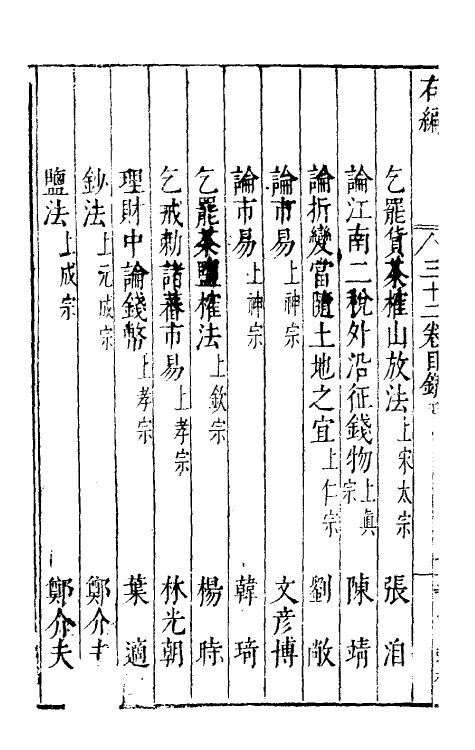 右編
三十二卷目錄
乞罷貨茶榷山放法 上宋太宗 張洎
論江南二稅外沿征錢物 上真宗 陳靖
論折變當隨土地之宜 上仁宗 劉敞
論市易 上神宗 文彦博
論市易 上神宗 韓琦
乞罷茶鹽榷法 上欽宗 楊時
乞戒勅諸蕃市易 上孝宗 林光朝
理財中論錢幣 上孝宗 葉適
鈔法 上元成宗 鄭介夫
鹽法 上成宗 鄭介夫